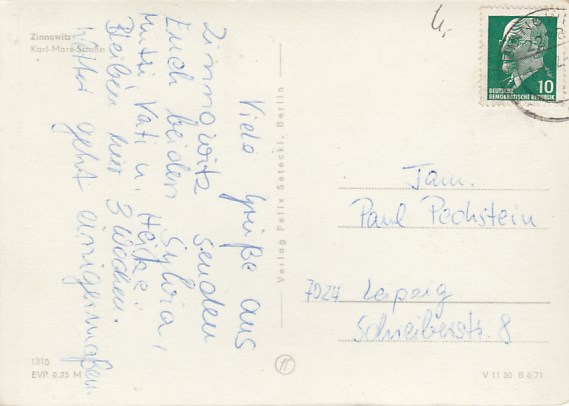 Zinnowitz
Karl-Marx-Straße
Viele Grüße aus
Zinnowitz senden
Euch beiden Sylvia,
Mutti, Vati u. Heike!
Bleiben nur 3 Wochen.
geht einigermaßen.
1310
EVP. 0,25 M
Verlag Felix Setecki, Berlin
10
DEUTSCHE
DEMOKRATISCHE REPUBLIK
Fam.
Paul Pechstein
7027 Leipzig
Schreiberstr. 8
V 11 50 B 6/71